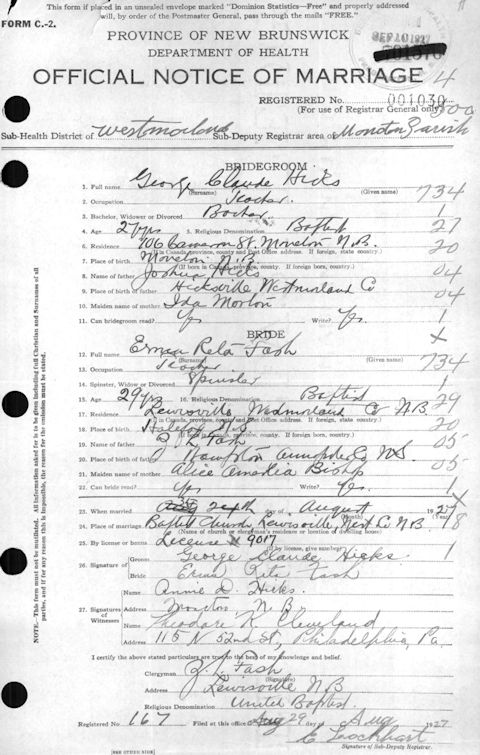 This form if placed in an unsealed envelope marked "Dominion Statistics—Free" and properly addressed
will, by order of the Postmaster General, pass through the mails "FREE."
FORM C.-2.
PROVINCE OF NEW BRUNSWICK
DEPARTMENT OF HEALTH
SEP 10 1927
OFFICIAL NOTICE OF MARRIAGE 4
REGISTERED No. 001030
(For use of Registrar General only)
Sub-Health District of Westmorland Sub-Deputy Registrar area of Moncton Parish
BRIDEGROOM
1. Full name George Claude Hicks 734
(Surname) (Given name)
2. Occupation Teacher
3. Bachelor, Widower or Divorced 1
4. Age 27 yrs 5. Religious Denomination Baptist 27
6. Residence 106 Cameron St. Moncton N.B. 20
7. Place of birth Moncton N.B.
(If born in Canada, province, county. If foreign born, country.)
8. Name of father Joshua Hicks 04
9. Place of birth of father Hicksville Westmorland Co 04
10. Maiden name of mother Ida Morton
11. Can bridegroom read? Yes Write? Yes 1
BRIDE X
12. Full name Rita Fash 734
(Surname) (Given name)
13. Occupation Teacher
14. Spinster, Widow or Divorced Spinster 1
15. Age 29 yrs 16. Religious Denomination Baptist 29
17. Residence Lewisville Westmorland Co N.B. 20
18. Place of birth N.S. 05
19. Name of father Fash
20. Place of birth of father Hampton Annapolis Co N.S 05
21. Maiden name of mother Alice Bishop
22. Can bride read? Yes Write? Yes 1
X
23. When married day of August 1927
(Month)
24. Place of marriage Baptist Church, Lewisville, West. Co N B 18
(Name of church or clergyman's residence or location of dwelling house)
25. By license or banns License # 9017 1
(If by license, give number)
26. Signature of
Groom George Claude Hicks
Bride Rita Fash
27. Signature of Witnesses
Name Annie D. Hicks
Address Moncton N.B.
Name Theodore R. Cleveland
Address 115 N 52nd St., Philadelphia, Pa.
I certify the above stated particulars are true to the best of my knowledge and belief.
Clergyman Z. L. Fash
(Signature)
Address Lewisville N B
Religious Denomination United Baptist
Registered No. 167 Filed at this office Aug 29 day of Aug 1927
E Lockhart
Signature of Sub-Deputy Registrar.
[SEE OTHER SIDE]
NOTE.—This form must not be mutilated. All information asked for is to be given including full Christian and Surnames of all
parties, and if for any reason this is impossible, the reason for the omission must be stated.